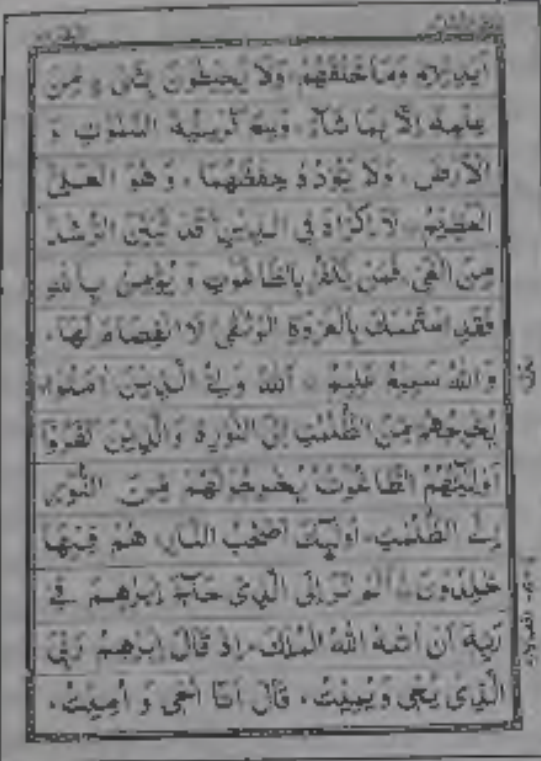 اَيْدِيْهِمْ وَمَا خَلْفَهُمْ وَلَا يُحِيْطُوْنَ بِشَيْءٍ مِّنْ
عِلْمِهٖۤ اِلَّا بِمَا شَآءَ وَسِعَ كُرْسِيُّهُ السَّمٰوٰتِ وَ
الْاَرْضَ وَلَا يَـُٔوْدُهٗ حِفْظُهُمَا وَهُوَ الْعَلِيُّ
الْعَظِيْمُ لَاۤ اِكْرَاهَ فِي الدِّيْنِ قَدْ تَّبَيَّنَ الرُّشْدُ
مِنَ الْغَيِّ فَمَنْ يَّكْفُرْ بِالطَّاغُوْتِ وَيُؤْمِنْۢ بِاللّٰهِ
فَقَدِ اسْتَمْسَكَ بِالْعُرْوَةِ الْوُثْقٰى لَا انْفِصَامَ لَهَا
وَاللّٰهُ سَمِيْعٌ عَلِيْمٌ اَللّٰهُ وَلِيُّ الَّذِيْنَ اٰمَنُوْا
يُخْرِجُهُمْ مِّنَ الظُّلُمٰتِ اِلَى النُّوْرِ وَالَّذِيْنَ كَفَرُوْۤا
اَوْلِيٰٓـُٔهُمُ الطَّاغُوْتُ يُخْرِجُوْنَهُمْ مِّنَ النُّوْرِ
اِلَى الظُّلُمٰتِ اُولٰٓئِكَ اَصْحٰبُ النَّارِ هُمْ فِيْهَا
خٰلِدُوْنَ اَلَمْ تَرَ اِلَى الَّذِيْ حَآجَّ اِبْرٰهٖمَ فِيْ
رَبِّهٖۤ اَنْ اٰتٰىهُ اللّٰهُ الْمُلْكَ اِذْ قَالَ اِبْرٰهٖمُ رَبِّيَ
الَّذِيْ يُحْيٖ وَيُمِيْتُ قَالَ اَنَا اُحْيٖ وَاُمِيْتُ